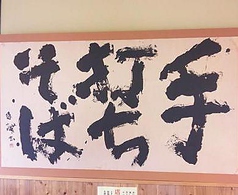 手
打ち
そば